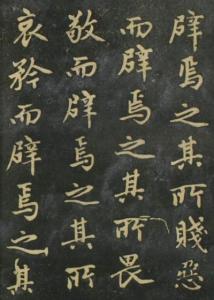 辟焉之其所賤惡
而辟焉之其所畏
敬而辟焉之其所
哀矜而辟焉之其